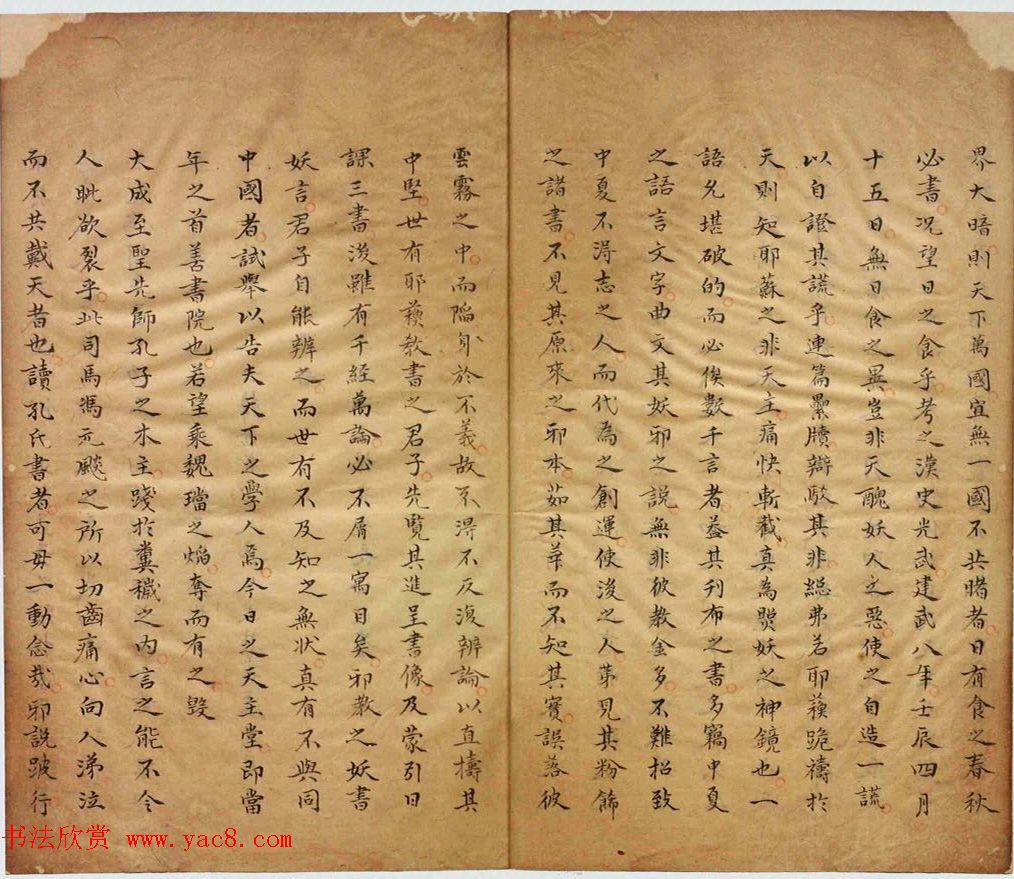 界大暗則天下萬國宜無一國不共睹者日有食之春秋
必書况望日之食乎考之漢史光武建武八年壬辰四月
十五日無日食之異豈非天醜妖人之惡使之自造一謊
以自證其謊乎連篇累牘辯駁其非總弗若耶蘓跪禱於
天則知耶蘇之非天主痛快斬截真為照妖之神鏡也一
語允堪破的而必俟數千言者葢其刊布之書多竊中夏
之語言文字曲文其妖邪之說無非彼教金多不難招致
中夏不淂志之人而代為之創運使後之人苐見其粉飾
之諸書不見其原來之邪本茹其華而不知其實誤落彼
雲霧之中而陥身於不義故不淂不反復辨論以直擣其
中堅世有耶蘓教書之君子先覽其進呈書像及蒙引日
課三書後雖有千經萬論必不屑一寓目矣邪教之妖書
妖言君子自能辨之而世有不及知之無状真有不與同
中國者試舉以告夫天下之學人焉今日之天主堂即當
年之首善書院也若望乘魏璫之焰奪而有之毀
大成至聖先師孔子之木主踐於糞穢之内言之能不令
人眦欲裂乎此司馬馮元飈之所以切齒痛心向人涕泣
而不共戴天者也讀孔氏書者可毋一動念哉邪説跛行
书法欣赏 www.yac8.com